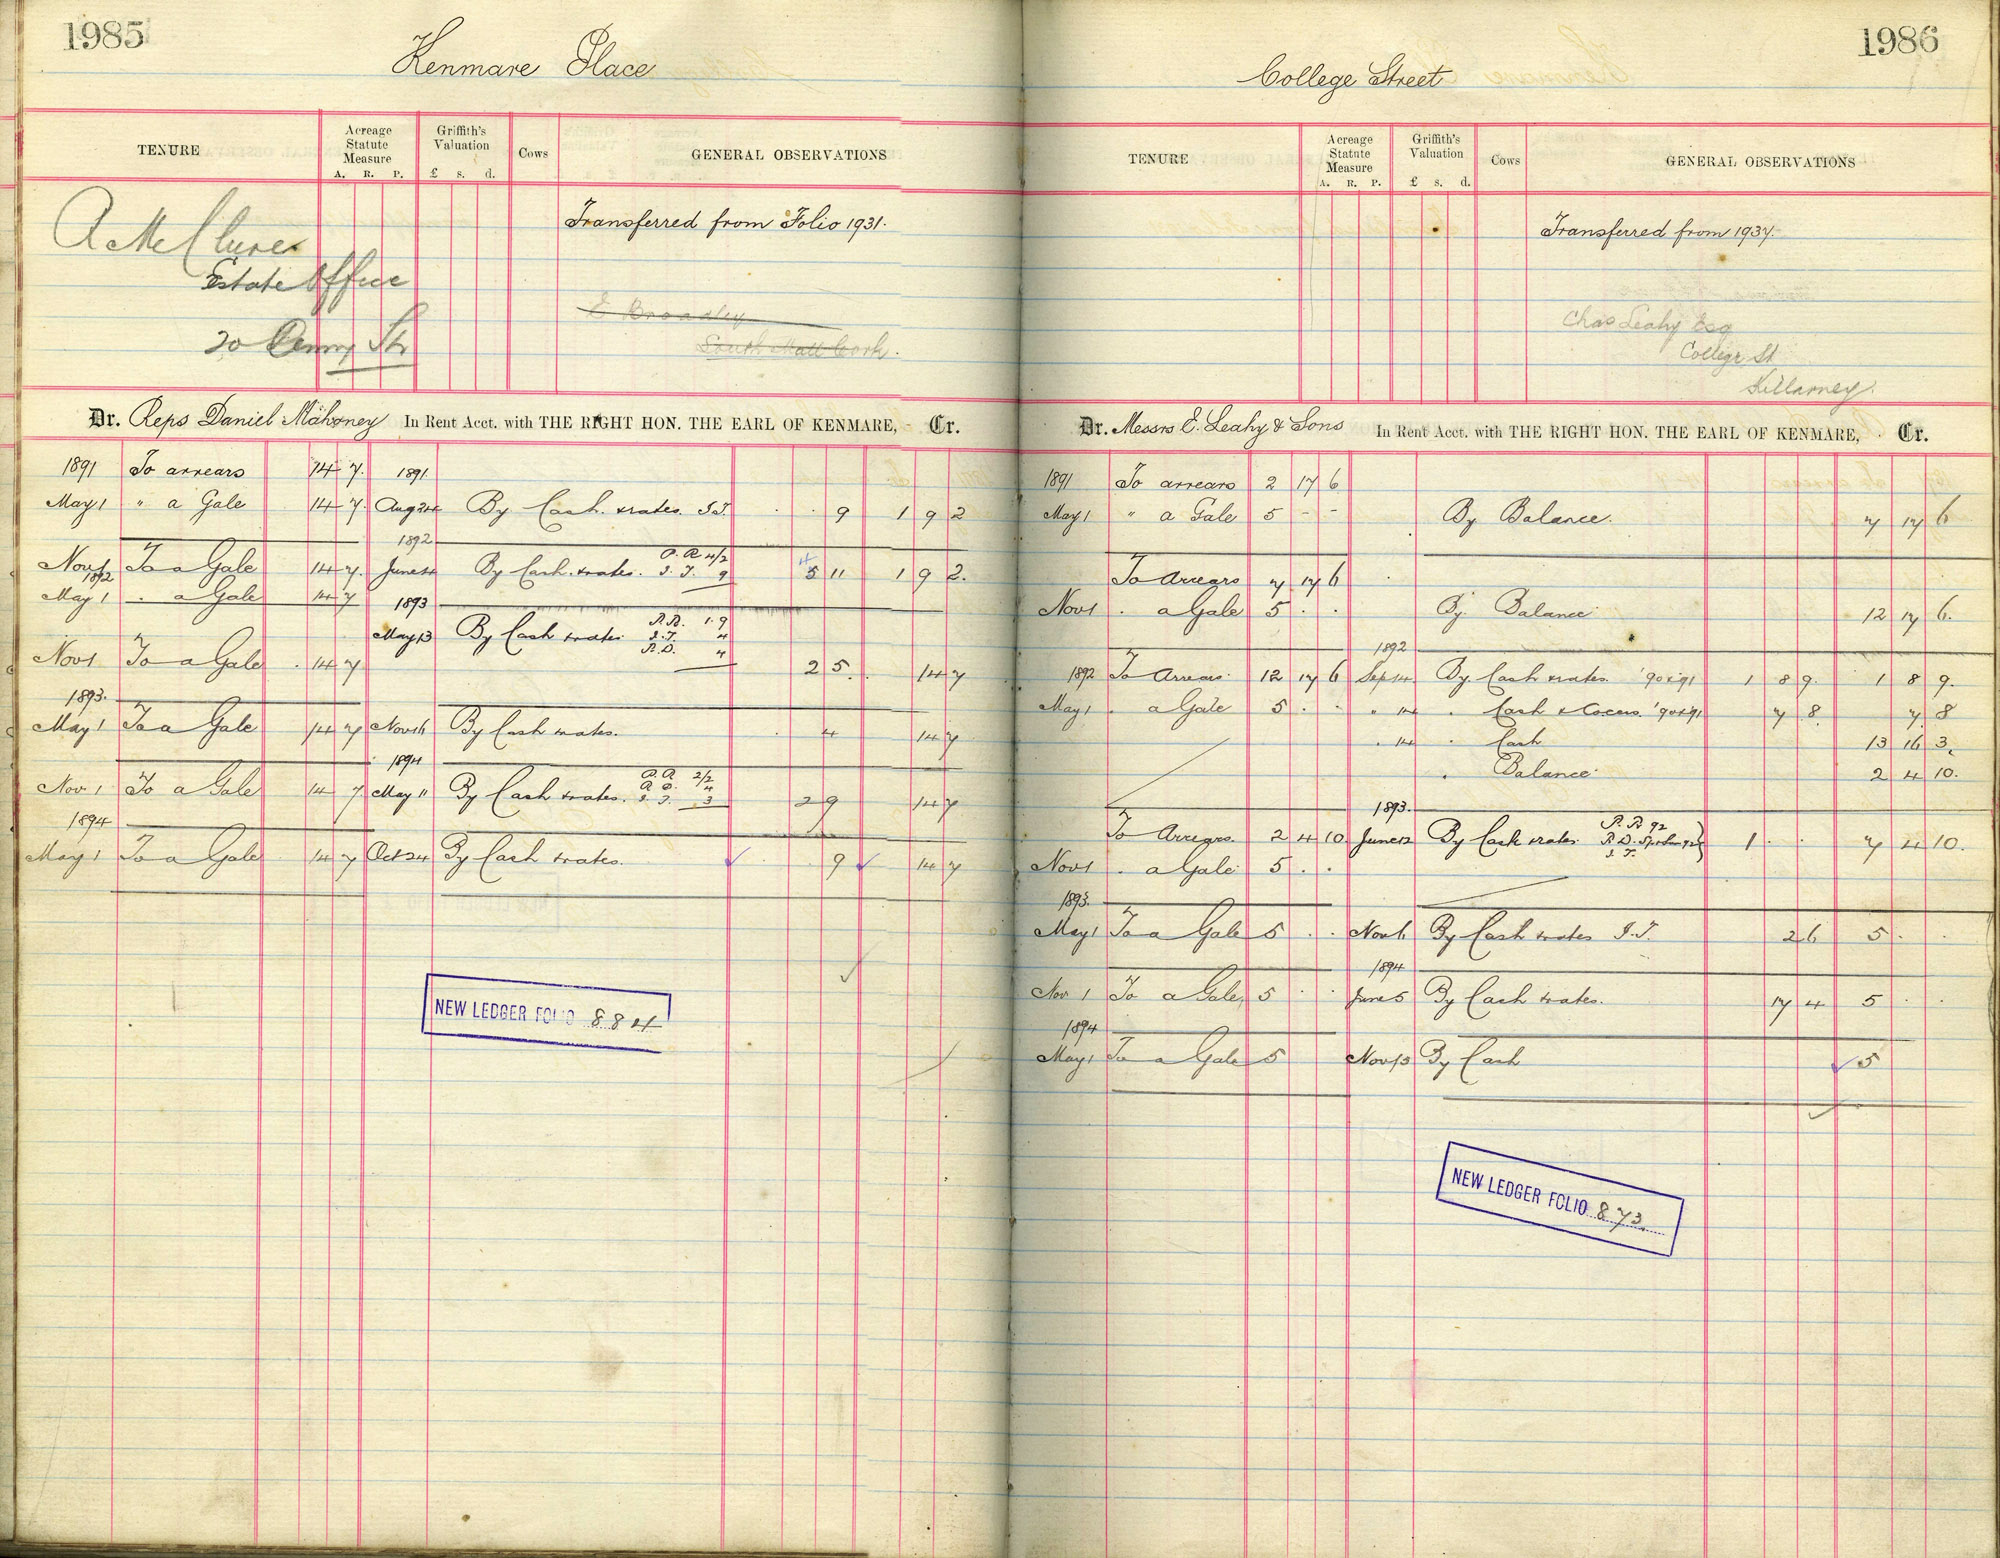 1985
Kenmare Place
TENURE
Acreage Statute Measure
A. R. P.
Griffith's Valuation
£ s. d.
Cows
GENERAL OBSERVATIONS
A McClure
Estate Office
20 Denny Str
Transferred from Folio 1931.
E Broadley
South Mall Cork.
Dr. Reps Daniel Mahoney In Rent Acct. with THE RIGHT HON. THE EARL OF KENMARE, Cr.
1891 To arrears 14 7. 1891.
May 1 " a Gale 14 7. Aug 24 By Cash. & rates. I.T. 9 1 9 2
1892
Nov 1 To a Gale 14 7. June 4 By Cash. & rates. P. R 4/2 I. T. 9 5 11 1 9 2.
1892
May 1 . a Gale 14 7
1893
May 13 By Cash & rates P.R. 1.9 I.T. 4 P.D. 4
Nov 1 To a Gale 14 7 2 5. 14 7
1893.
May 1 To a Gale 14 7 Nov 16 By Cash & rates. 4 14 7
1894
Nov 1 To a Gale 14 7 May 11 By Cash & rates. P. R. 2/2 I. T. 3 2 9 14 7
1894
May 1 To a Gale 14 7 Oct 24 By Cash & rates. 9 14 7
NEW LEDGER FOLIO 884
1986
College Street
TENURE
Acreage Statute Measure
A. R. P.
Griffith's Valuation
£ s. d.
Cows
GENERAL OBSERVATIONS
Transferred from 1937.
Chas Leahy Esq
College St
Killarney.
Dr. Messrs E. Leahy & Sons In Rent Acct. with THE RIGHT HON. THE EARL OF KENMARE, Cr.
1891 To arrears 2 17 6
May 1 " a Gale 5 - - By Balance. 7 17 6
To Arrears 7 17 6
Nov 1 . a Gale 5 . . By Balance 12 17 6.
1892
1892 To Arrears 12 17 6 Sep 14 By Cash & rates. '90 & '91 1 8 9. 1 8 9.
May 1 . a Gale 5 . . " 14 . Cash '90 & '91 7 8. 7. 8
. 14 . Cash 13 16 3.
. Balance 2 4 10.
1893.
To Arrears. 2 4 10. June 12 By Cash & rates P. R 92 I. T. 1 . . 7 4 10.
Nov 1 . a Gale 5 . .
1893.
May 1 To a Gale 5 . . Nov 6 By Cash & rates I.T. 2 6 5 . .
1894
Nov 1 To a Gale 5 . . June 5 By Cash & rates. 17 4 5 . .
1894
May 1 To a Gale 5 Nov 13 By Cash 5
NEW LEDGER FOLIO 873.